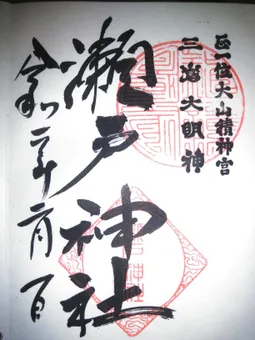 正一位大山積神宮
三島大明神
瀬戸神社
令和二年二月一日